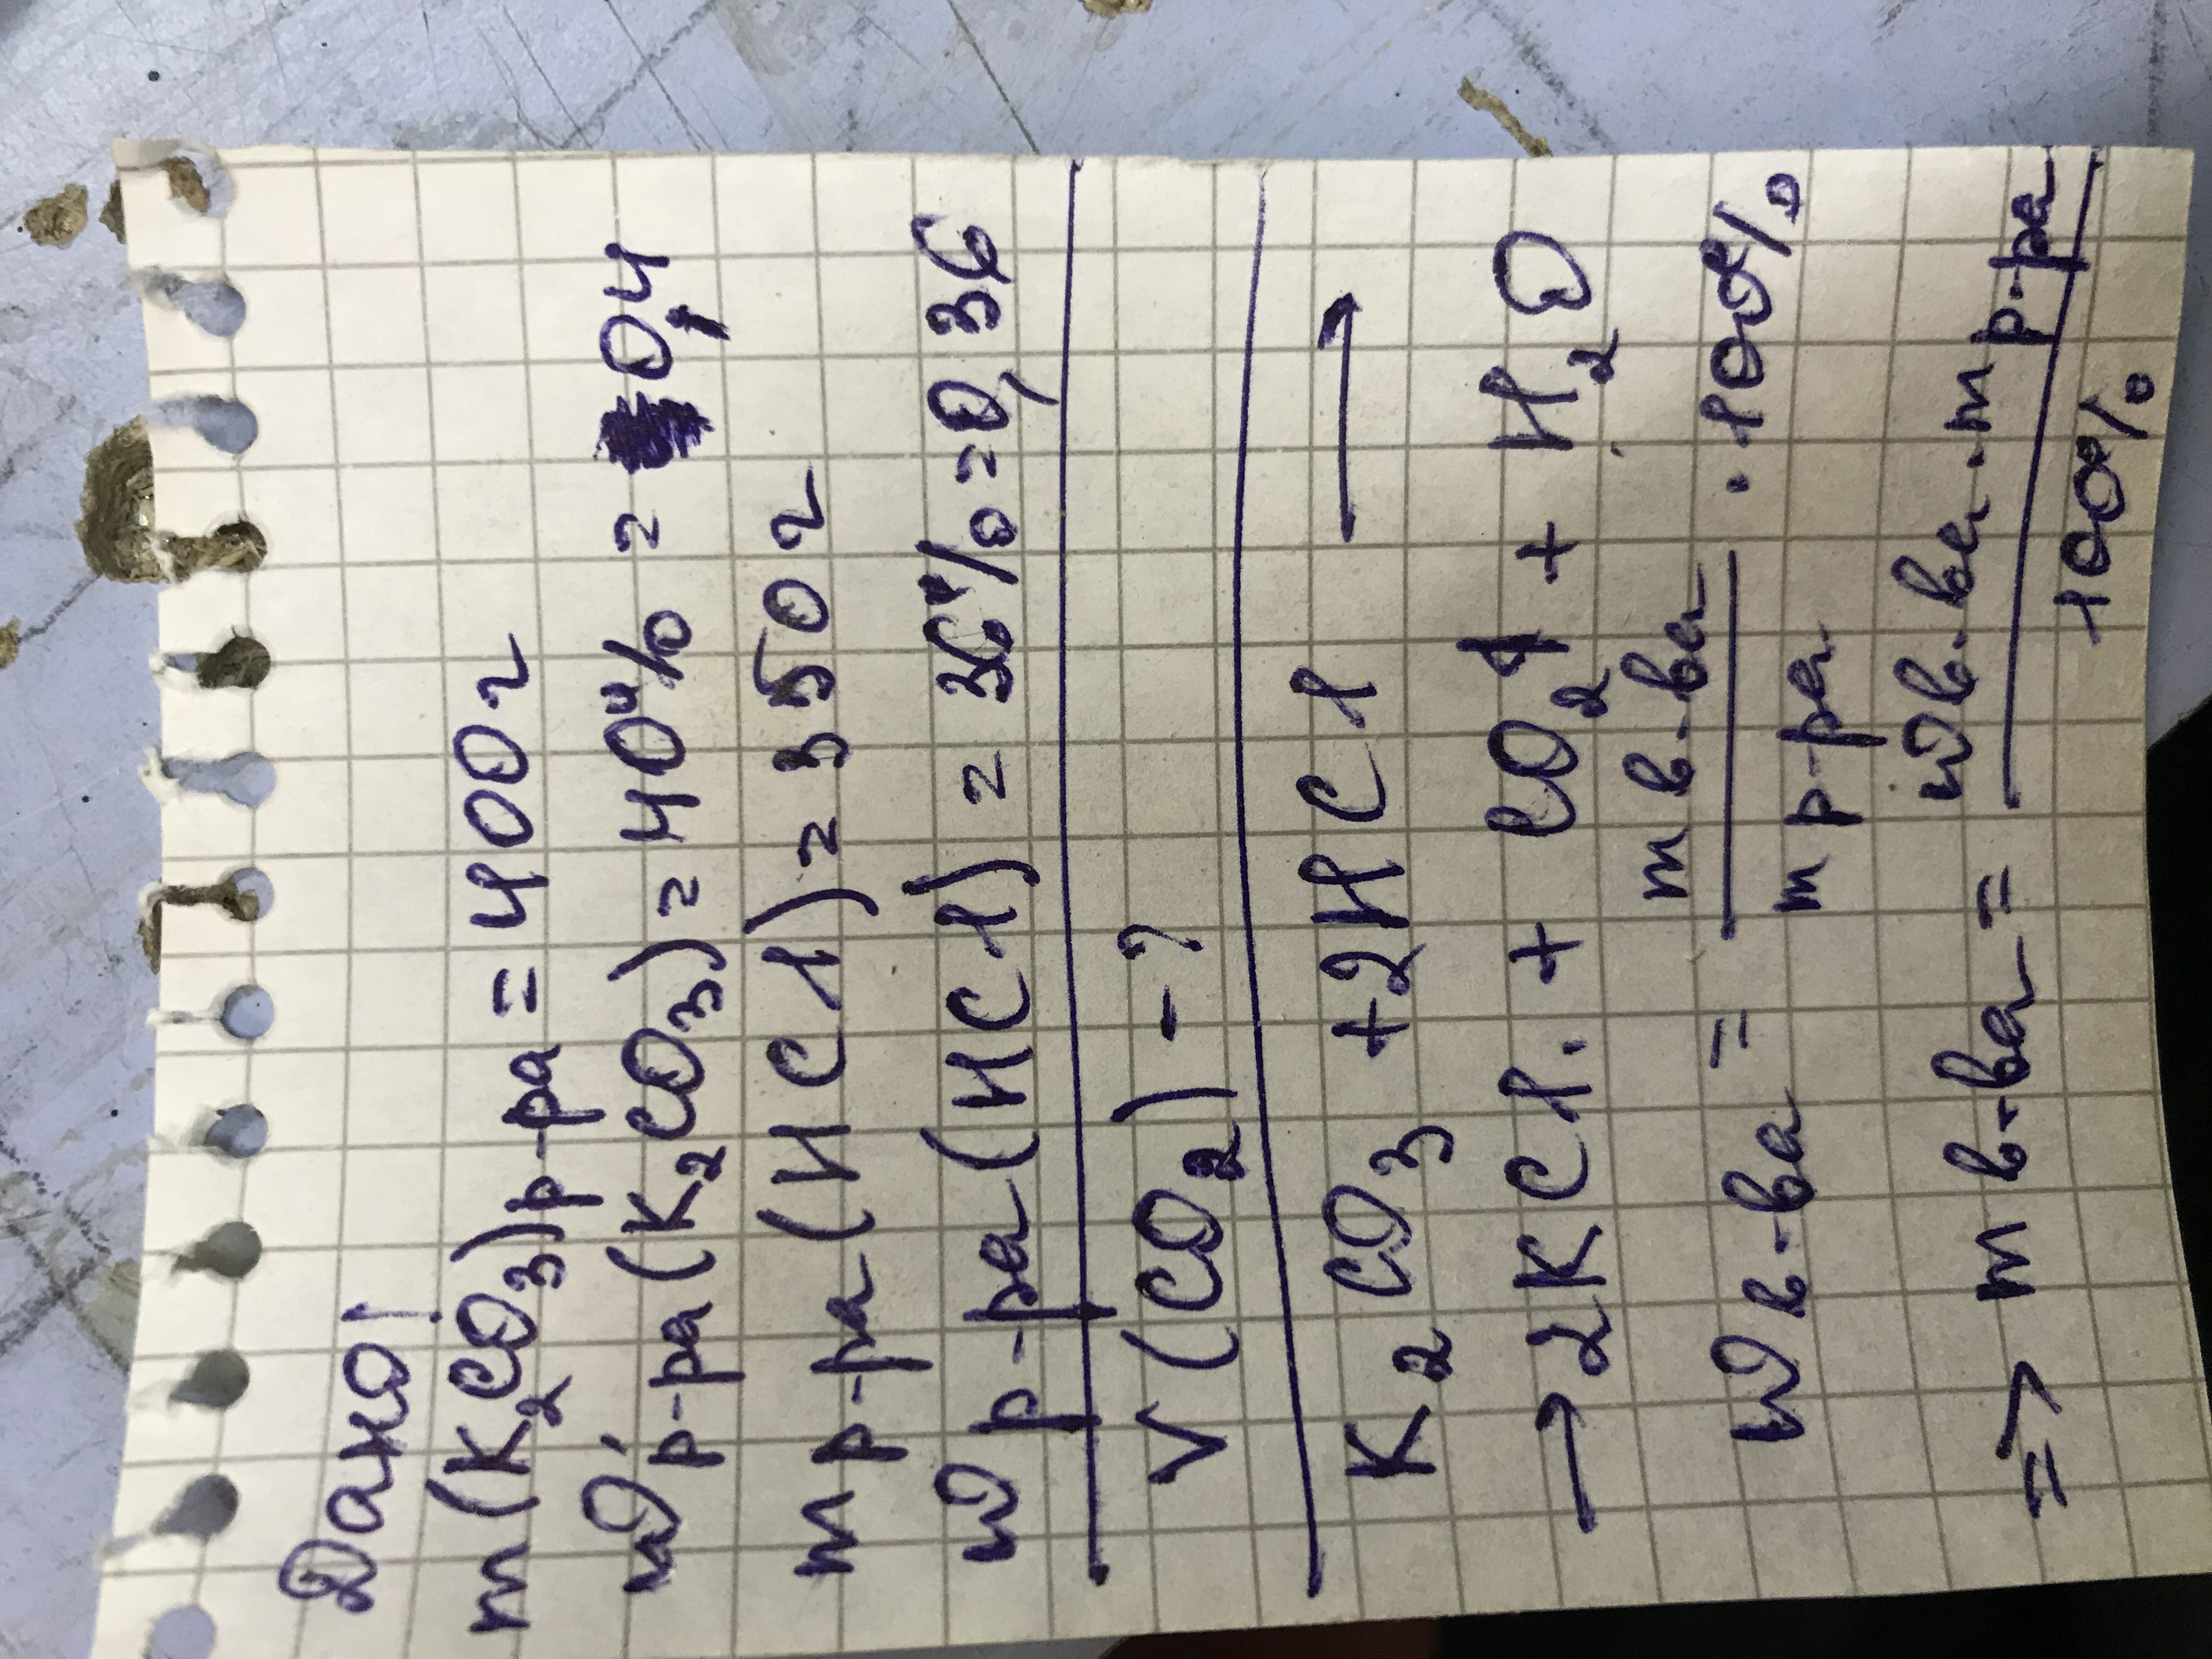 Дано:
m(K₂CO₃)р-ра = 400г
ω р-ра(K₂CO₃) = 40% = 0,4
m р-ра(HCl) = 350г
ω р-ра(HCl) = 36% = 0,36
V(CO₂) - ?
K₂CO₃ + 2HCl ⟶
→ 2KCl + CO₂↑ + H₂O
ω в-ва = m в-ва / m р-ра · 100%
=> m в-ва = ω в-ва · m р-ра / 100%